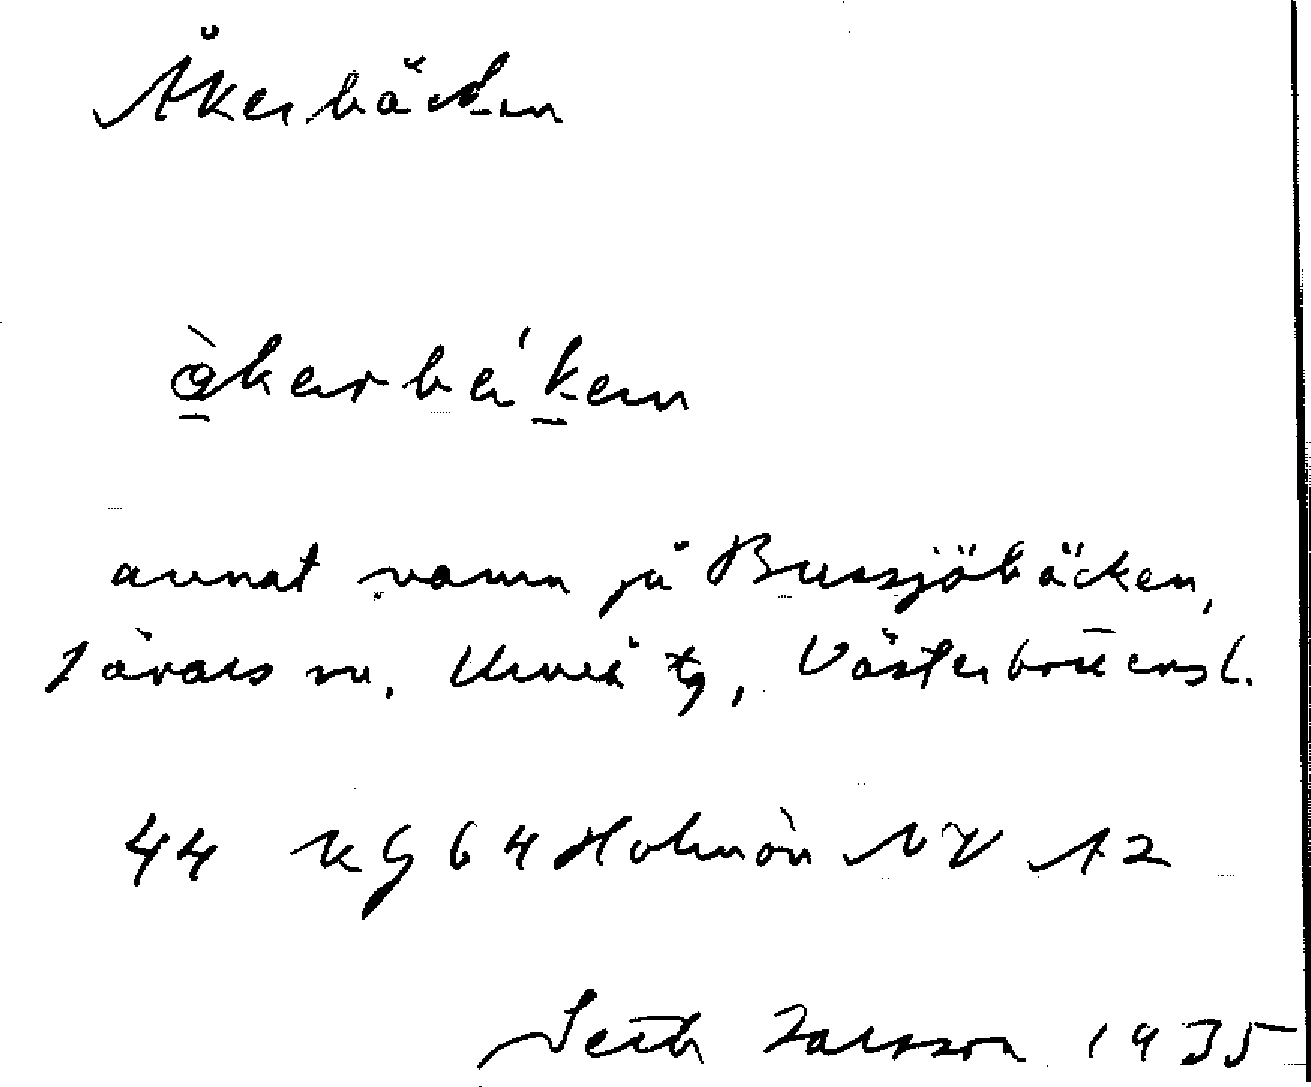 Åkerbäcken
åkerbä'ken
annat namn på Bussjöbäcken,
Sävars sn, Umeå tg, Västerbottens l.
44 KG 64 Holmön NV A2
Seth Larsson 1935